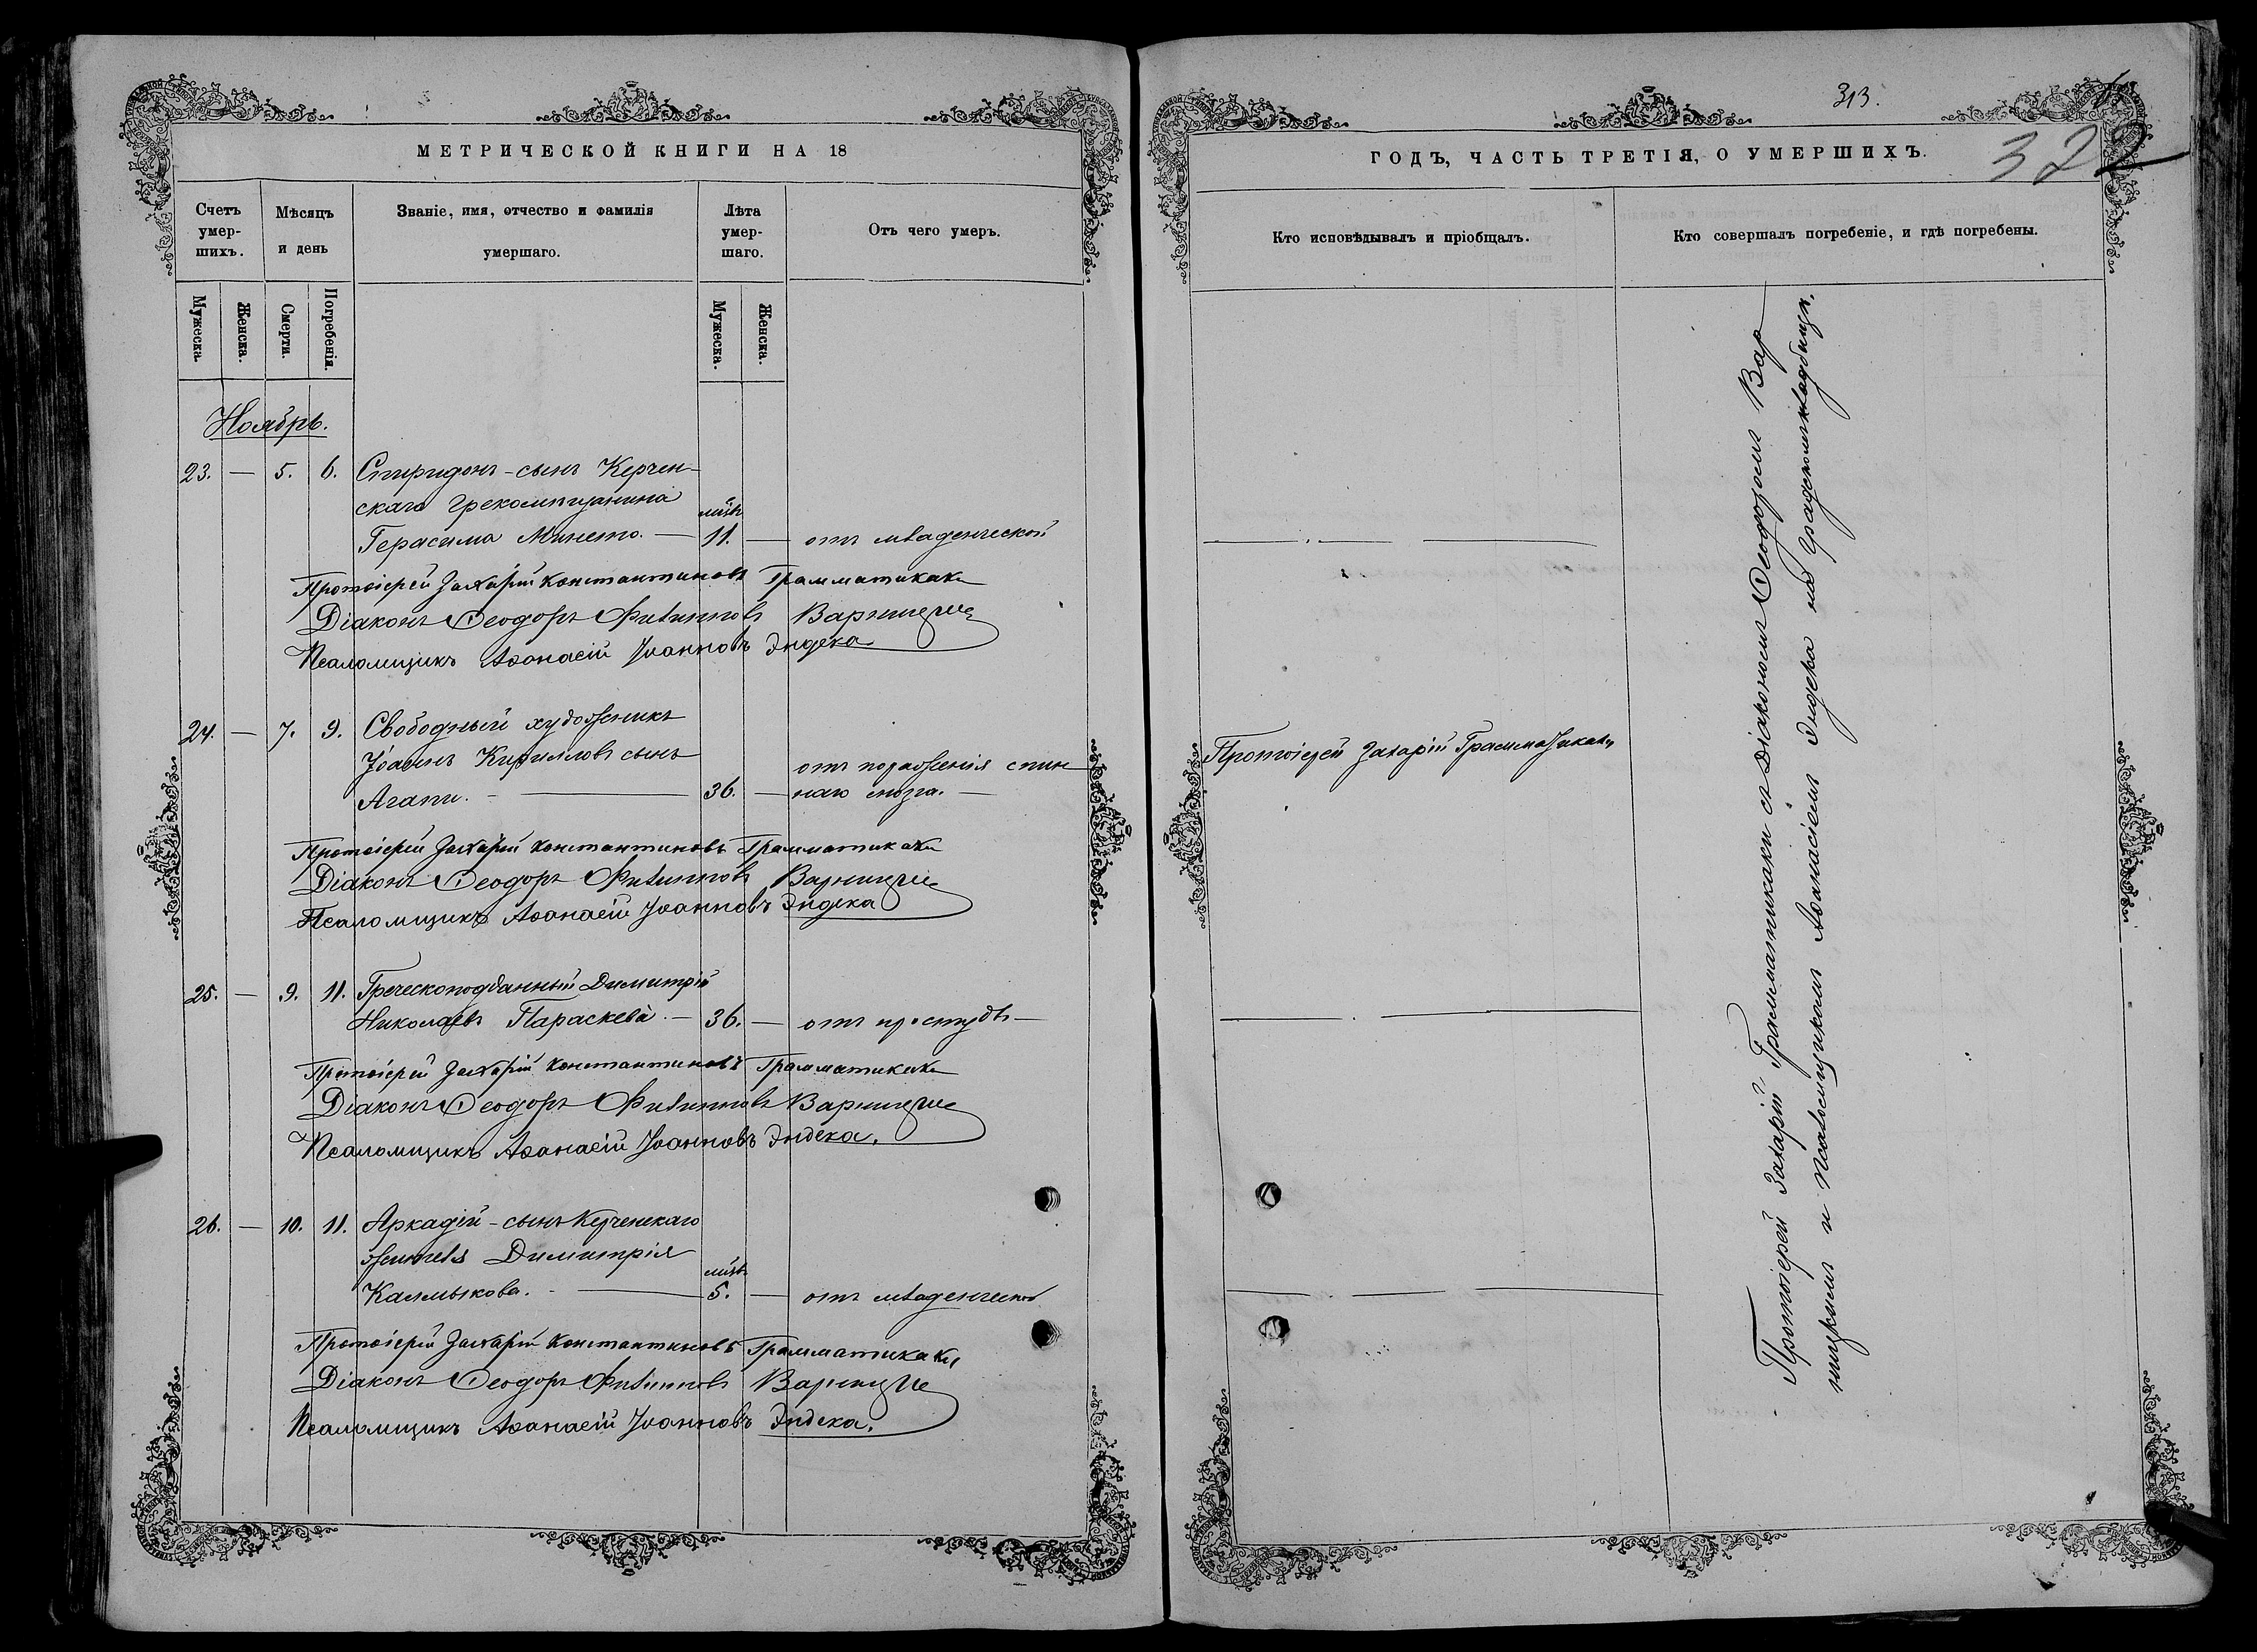 МЕТРИЧЕСКОЙ КНИГИ НА 18
Счетъ умер-шихъ. Мѣсяцъ и день Званіе, имя, отчество и фамилія умершаго. Лѣта умер-шаго. Отъ чего умеръ.
Мужеска. Женска. Смерти. Погребенія. Мужеска. Женска.
Ноябрь.
23. — 5. 6. Спиридонъ - сынъ Керчен-
скаго грекомѣщанина мѣс.
Герасима Минето. — 11. — отъ младенческой
Протоіерей Захарій Константиновъ Грамматикаки
Діаконъ Ѳеодоръ Филипповъ Варницкіе
Псаломщикъ Аѳанасій Іоанновъ Эндека
24. — 7. 9. Свободный художникъ
Іоаннъ Кирилловъ сынъ
отъ пораженія спин
Агапи. — 36. — наго мозга. —
Протоіерей Захарій Константиновъ Грамматикаки
Діаконъ Ѳеодоръ Филипповъ Варницкіе
Псаломщикъ Аѳанасій Іоанновъ Эндека
25. — 9. 11. Греческоподданный Димитрій
Николаевъ Параскева. — 36. — отъ простуды —
Протоіерей Захарій Константиновъ Грамматикаки
Діаконъ Ѳеодоръ Филипповъ Варницкіе
Псаломщикъ Аѳанасій Іоанновъ Эндека.
26. — 10. 11. Аркадій - сынъ Керченскаго
жителя Димитрія мѣс.
Калмыкова. — 5. — отъ младенческой
Протоіерей Захарій Константиновъ Грамматикаки
Діаконъ Ѳеодоръ Филипповъ Варницкіе
Псаломщикъ Аѳанасій Іоанновъ Эндека.
313.
322
ГОДЪ, ЧАСТЬ ТРЕТІЯ, О УМЕРШИХЪ.
Кто исповѣдывалъ и пріобщалъ. Кто совершалъ погребеніе, и гдѣ погребены.
Протоіерей Захарій Грамматикаки
Протоіерей Захарій Грамматикаки съ Діакономъ Ѳеодоромъ Вар
ницкимъ и псаломщикомъ Аѳанасіемъ Эндека на градскомъ кладбищѣ.